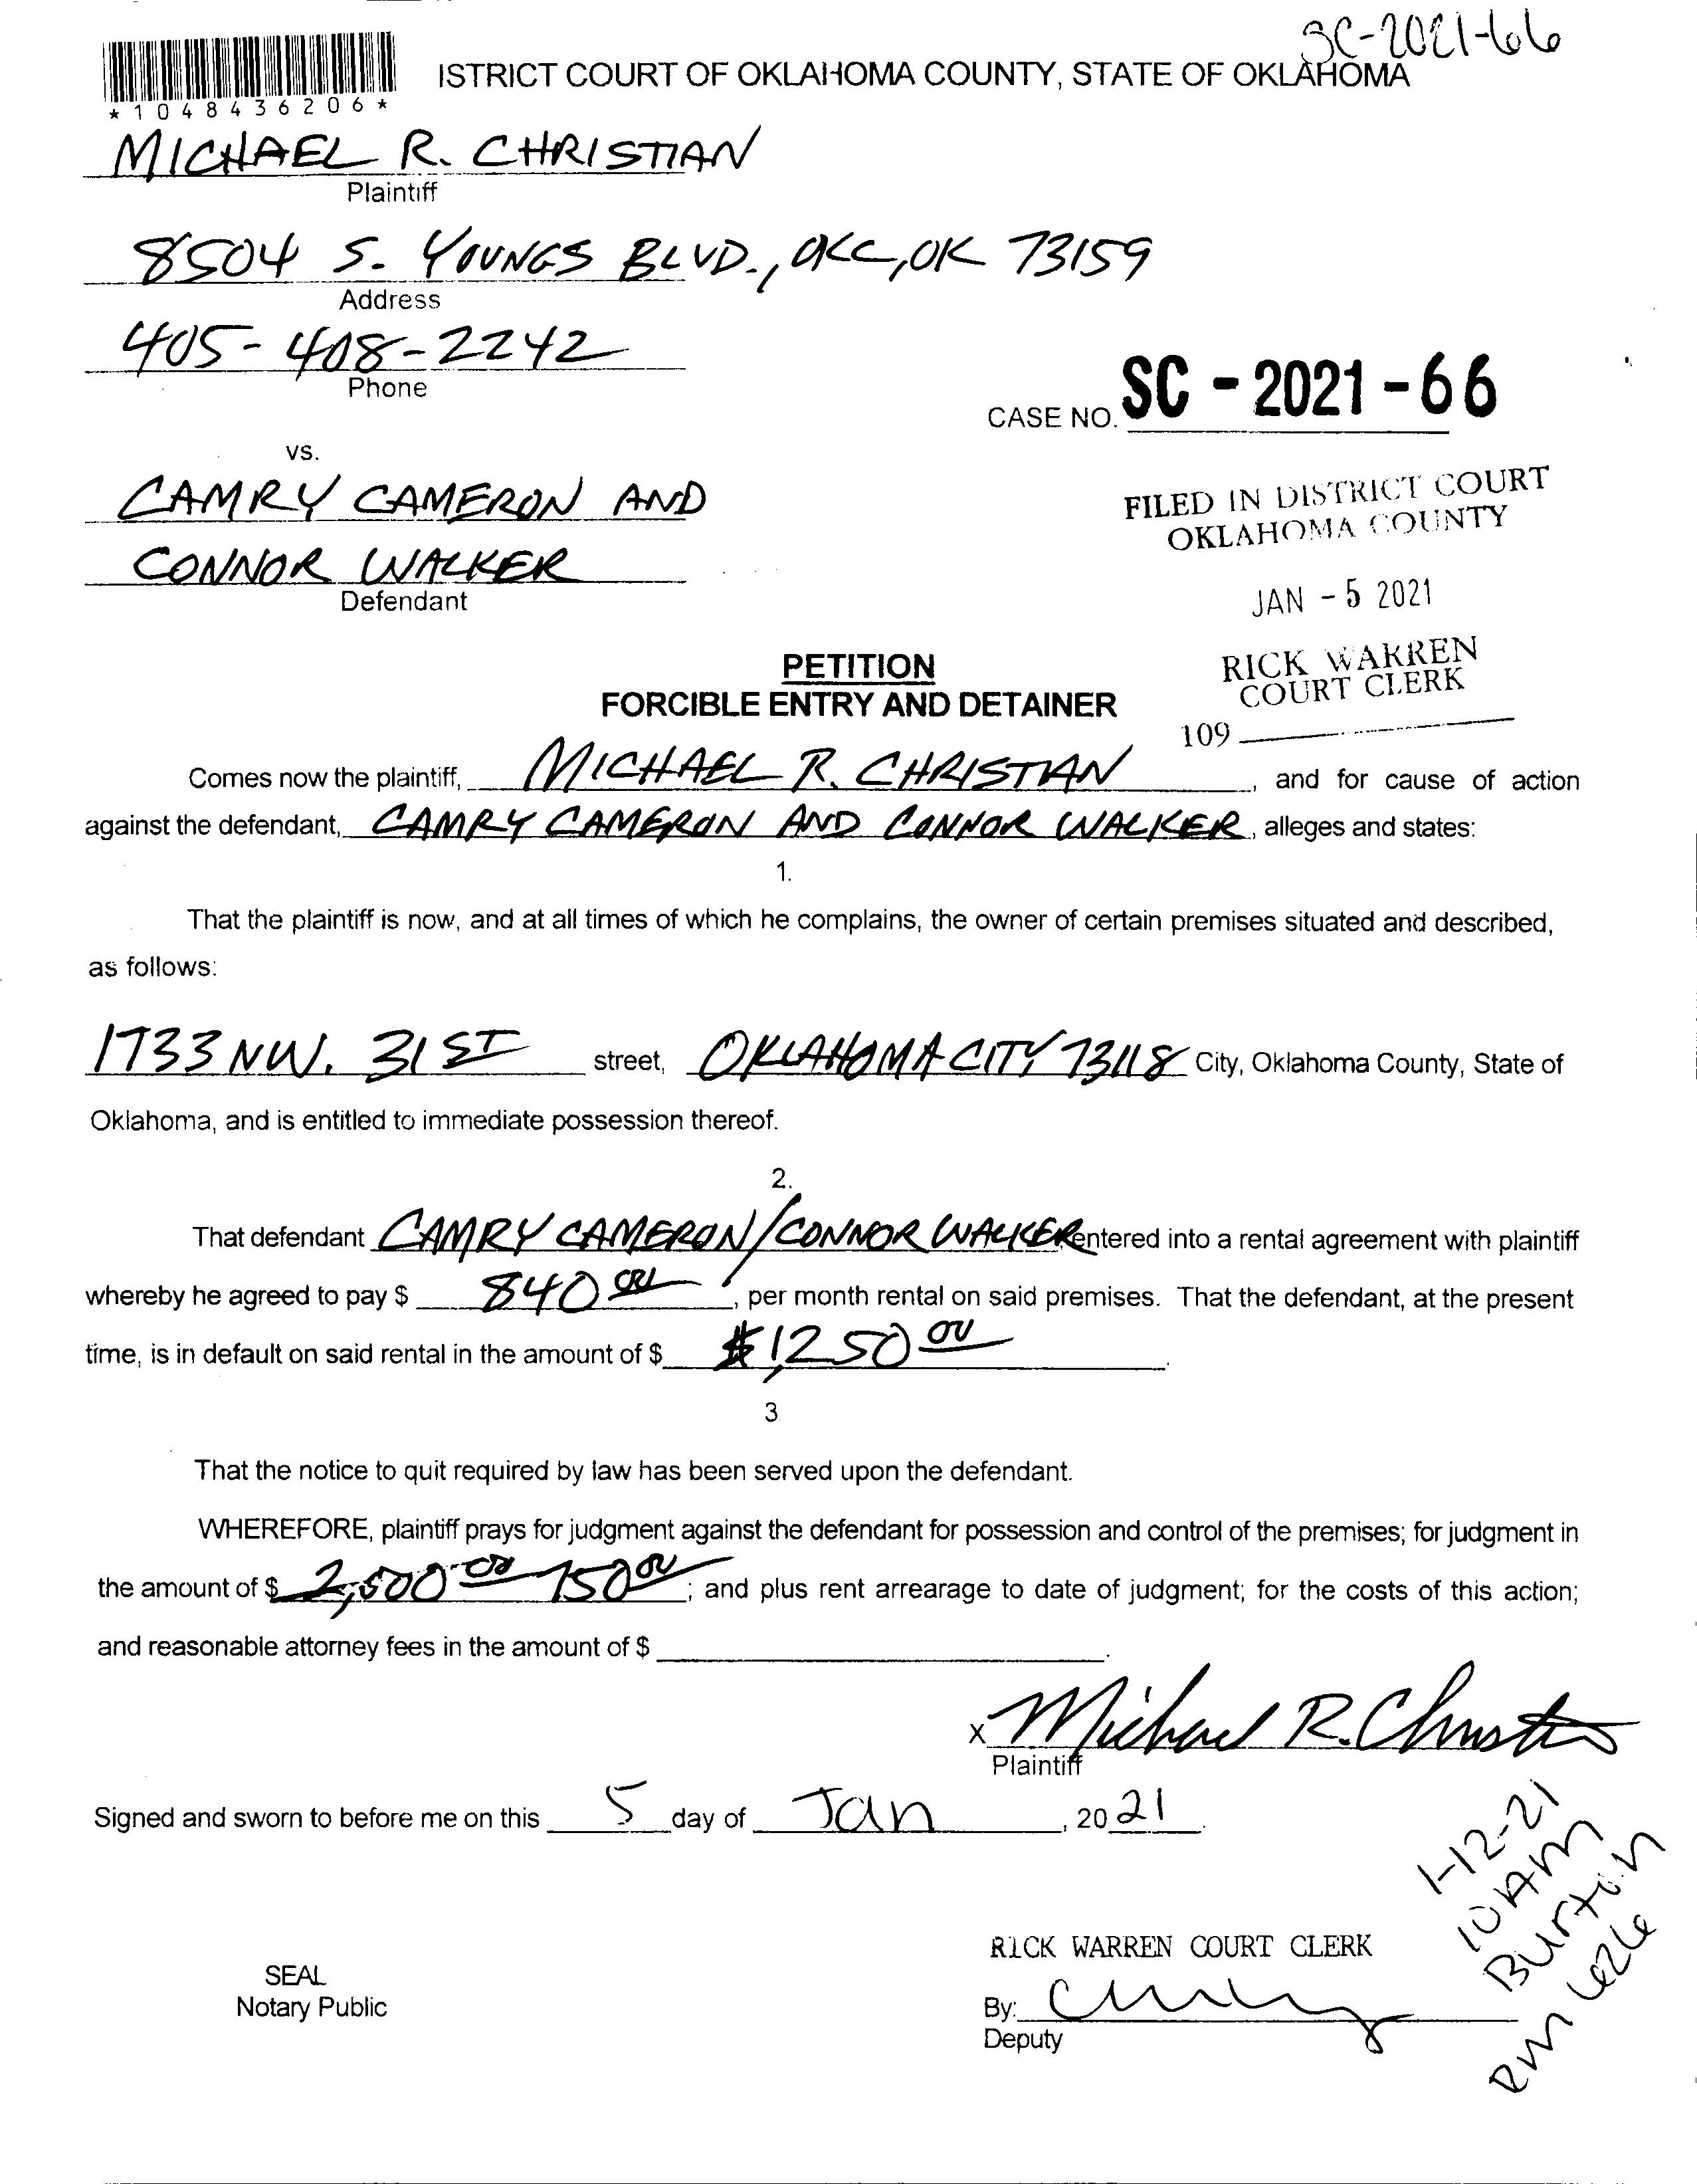 SC-2021-66
ISTRICT COURT OF OKLAHOMA COUNTY, STATE OF OKLAHOMA
*1048436206*
MICHAEL R. CHRISTIAN
Plaintiff
8504 S. YOUNGS BLVD., OKC, OK 73159
Address
405-408-2242
Phone
CASE NO. SC - 2021 - 66
vs.
CAMRY CAMERON AND
CONNOR WALKER
Defendant
FILED IN DISTRICT COURT
OKLAHOMA COUNTY
JAN - 5 2021
RICK WARREN
COURT CLERK
109
PETITION
FORCIBLE ENTRY AND DETAINER
Comes now the plaintiff, MICHAEL R. CHRISTIAN, and for cause of action
against the defendant, CAMRY CAMERON AND CONNOR WALKER, alleges and states:
1.
That the plaintiff is now, and at all times of which he complains, the owner of certain premises situated and described,
as follows:
1733 NW. 31 ST street, OKLAHOMA CITY 73118 City, Oklahoma County, State of
Oklahoma, and is entitled to immediate possession thereof.
2.
That defendant CAMRY CAMERON/CONNOR WALKER entered into a rental agreement with plaintiff
whereby he agreed to pay $ 840, per month rental on said premises. That the defendant, at the present
time, is in default on said rental in the amount of $ $1,250 00.
3
That the notice to quit required by law has been served upon the defendant.
WHEREFORE, plaintiff prays for judgment against the defendant for possession and control of the premises; for judgment in
the amount of $ 2,500 00 750 00; and plus rent arrearage to date of judgment; for the costs of this action;
and reasonable attorney fees in the amount of $ .
x Michael R. Christian
Plaintiff
Signed and sworn to before me on this 5 day of Jan, 20 21.
1-12-21
10 AM
Burton
RICK WARREN COURT CLERK
SEAL
Notary Public
By:
Deputy